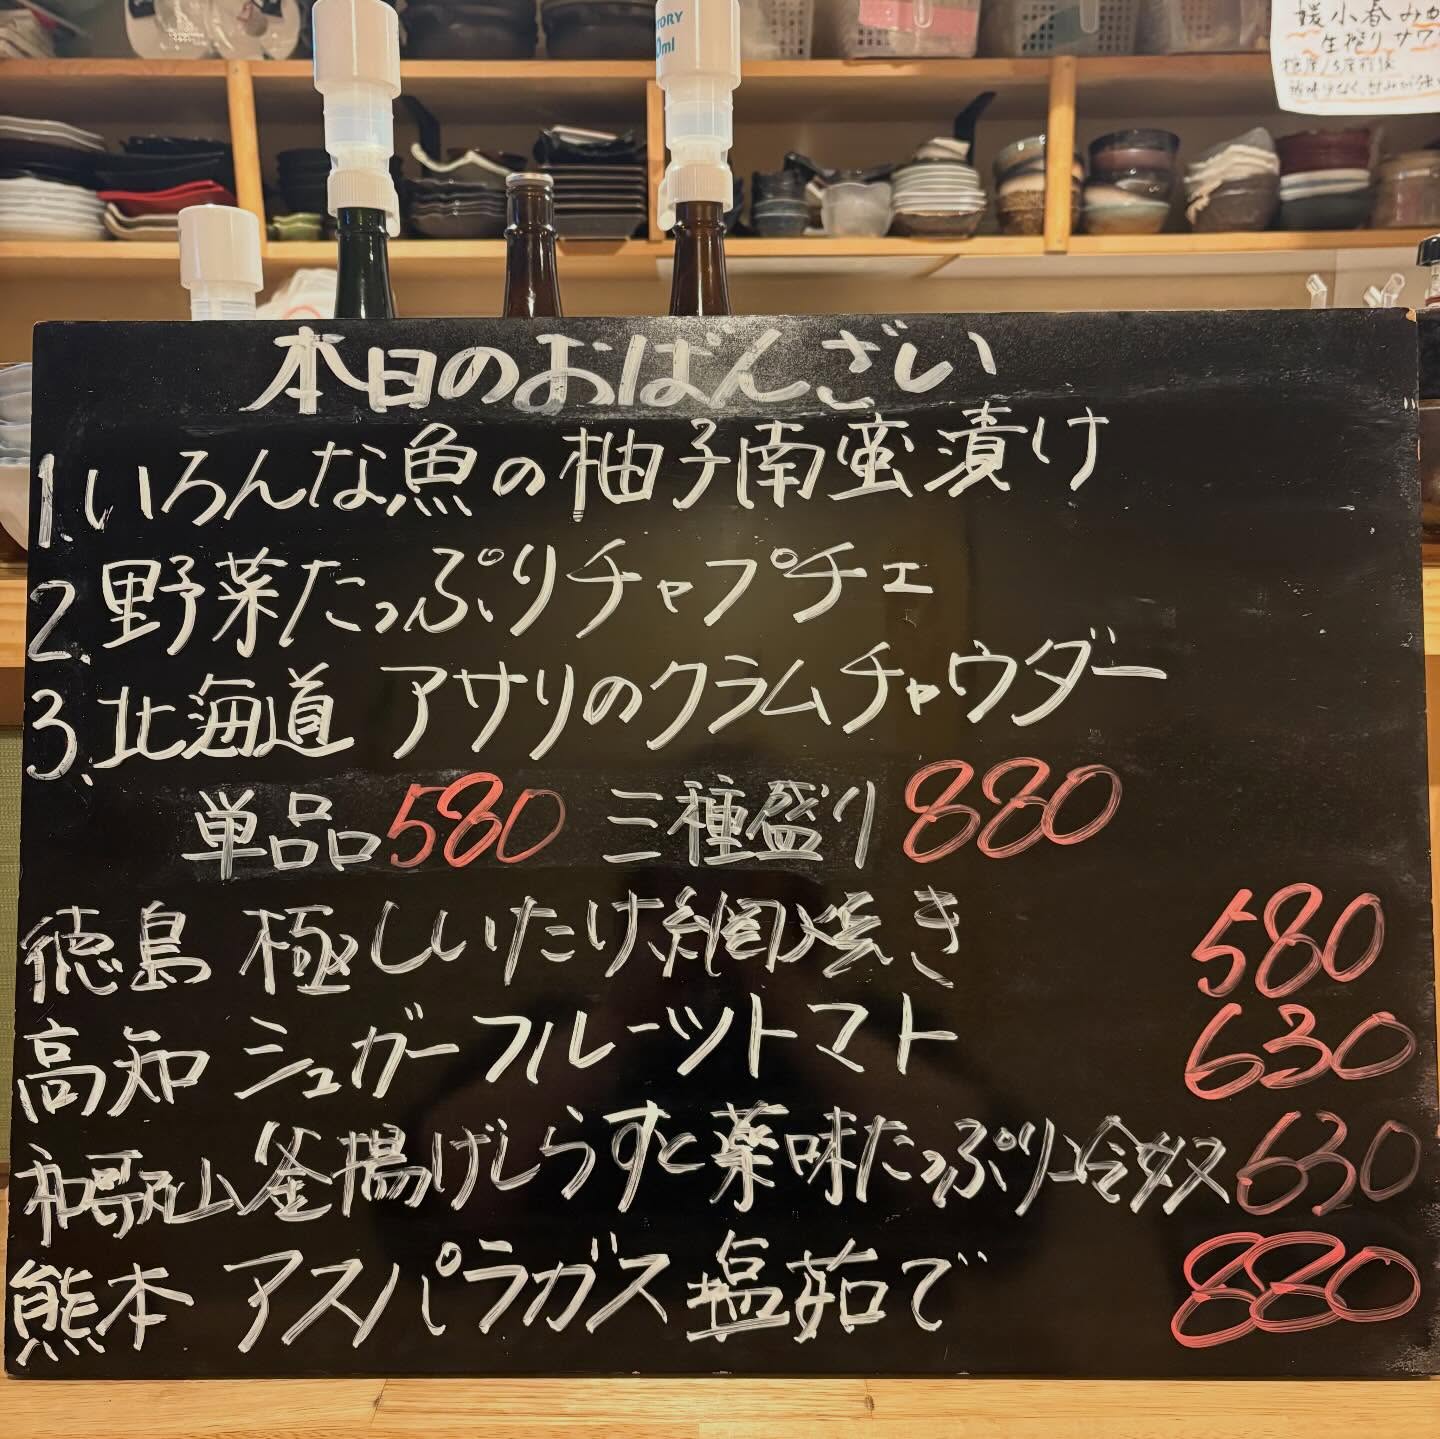 TORY
0ml
媛小春みか
生搾りサワ
本日のおばんざい
1.いろんな魚の柚子南蛮漬け
2.野菜たっぷりチャプチェ
3.北海道 アサリのクラムチャウダー
単品580 三種盛り880
徳島 極しいたけ網焼き 580
高知 シュガーフルーツトマト 630
和歌山釜揚げしらすと薬味たっぷり冷奴 630
熊本 アスパラガス塩茹で 880